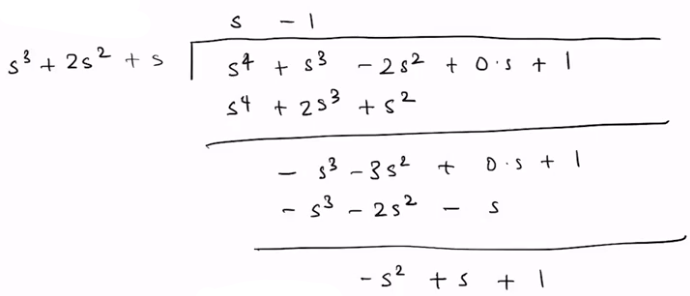 s - 1
s³ + 2s² + s | s⁴ + s³ - 2s² + 0·s + 1
s⁴ + 2s³ + s²
- s³ - 3s² + 0·s + 1
- s³ - 2s² - s
- s² + s + 1